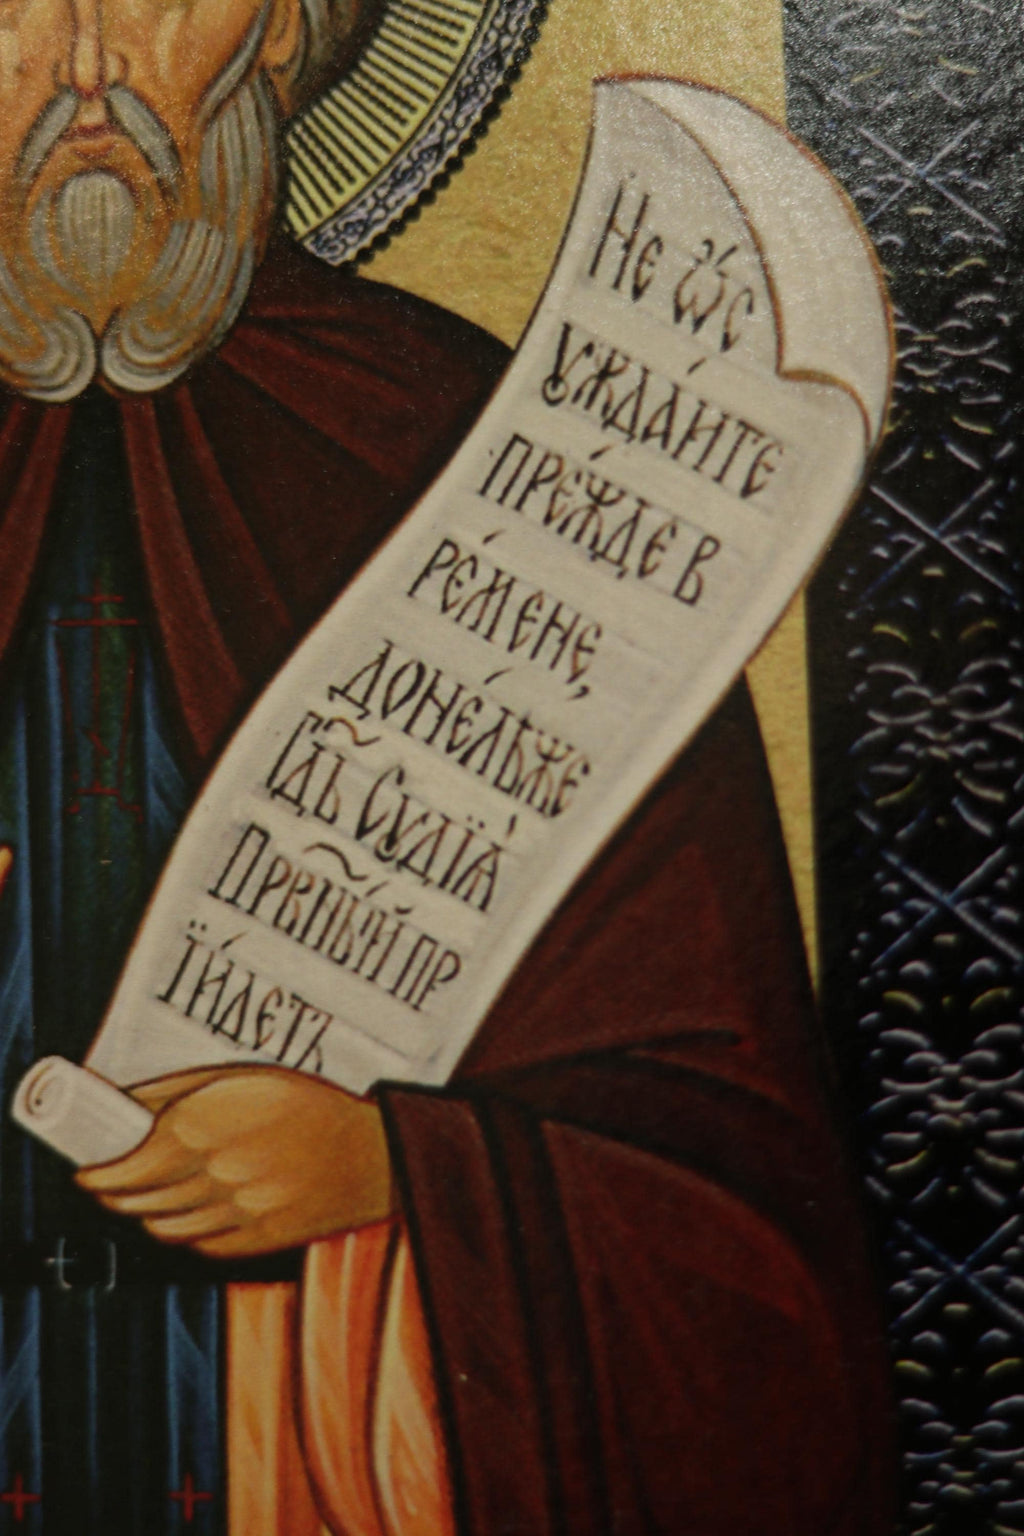 Не ѡ҆́с
ꙋжда́йте
пре́жде в
ре́мене,
доне́лѣже
Гд҃ь Сꙋдїѧ̀
Првⷣный
їи́детъ